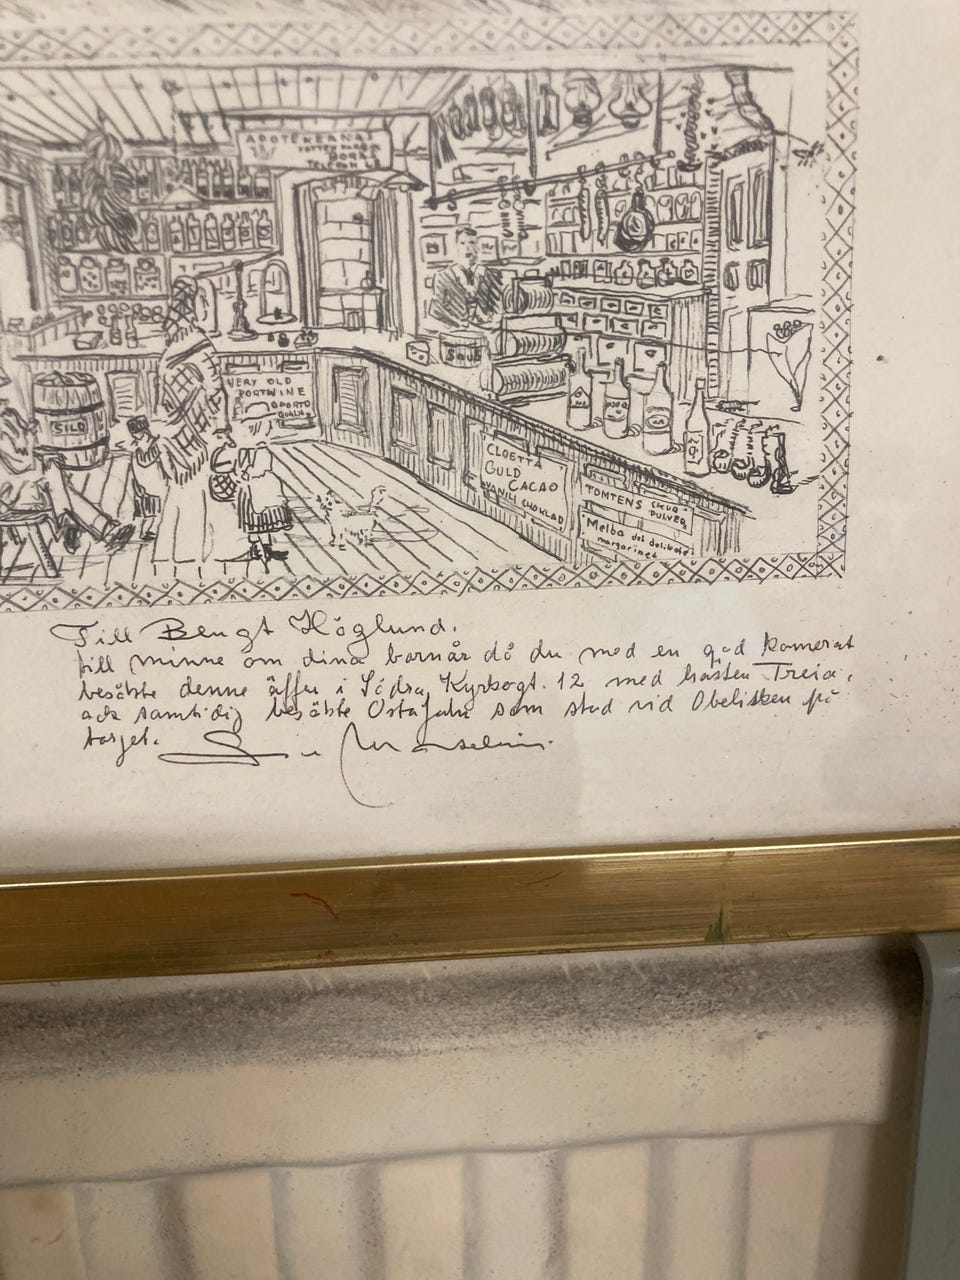 APOTEKARNAS
VATTENFABRIK
TELEFON 43
VERY OLD
PORTWINE
OPORTO
SILD
CLOETTA
GULD
CACAO
VANILJ CHOKLAD
TOMTENS SKUR
PULVER
Melba det delikata
margarinet
Till Bengt Höglund.
till minne om dina barnår då du med en god kamerat
besökte denne affer i Södra Kyrkogt. 12 med hästen Freia,
ock samtidig besökte som stod vid Obelisken på
torget.